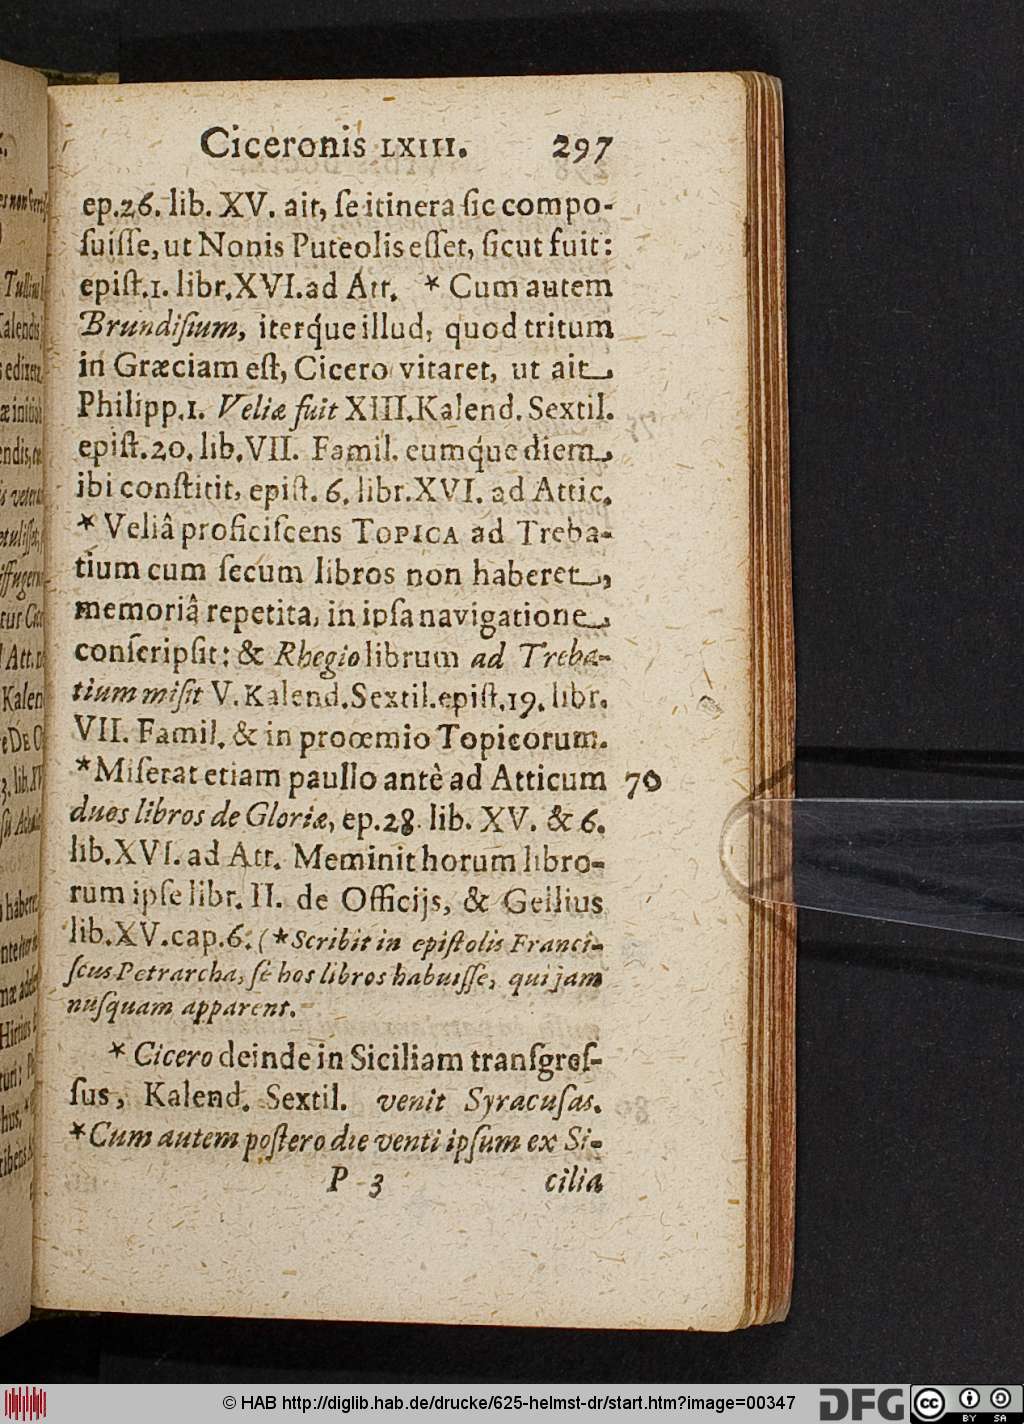 Ciceronis LXIII. 297
ep.26. lib. XV. ait, ſe itinera ſic compo-
ſuiſſe, ut Nonis Puteolis eſſet, ſicut fuit:
epiſt.1. libr.XVI.ad Att. * Cum autem
Brundiſium, iterq́ue illud, quod tritum
in Græciam eſt, Cicero vitaret, ut ait
Philipp.1. Veliæ fuit XIII.Kalend. Sextil.
epiſt.20. lib.VII. Famil. eumq́ue diem
ibi conſtitit, epiſt. 6. libr.XVI. ad Attic.
* Veliâ proficiſcens TOPICA ad Treba-
tium cum ſecum libros non haberet,
memoriâ repetita, in ipſa navigatione,
conſcripſit: & Rhegio librum ad Treba-
tium miſit V. Kalend.Sextil.epiſt.19. libr.
VII. Famil. & in proœmio Topicorum.
*Miſerat etiam paullo antè ad Atticum 70
duos libros de Gloriæ, ep.28. lib. XV. & 6.
lib.XVI. ad Att. Meminit horum libro-
rum ipſe libr. II. de Officijs, & Gellius
lib.XV.cap.6. (*Scribit in epiſtolis Franci-
ſcus Petrarcha, ſe hos libros habuiſſe, qui jam
nuſquam apparent.
* Cicero deinde in Siciliam transgreſ-
ſus, Kalend. Sextil. venit Syracuſas.
*Cum autem poſtero die venti ipſum ex Si-
P 3 cilia
© HAB http://diglib.hab.de/drucke/625-helmst-dr/start.htm?image=00347
DFG
cc BY SA